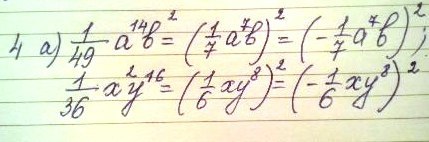 4 а) 1/49 a¹⁴b² = (1/7 a⁷b)² = (-1/7 a⁷b)²;
1/36 x²y¹⁶ = (1/6 xy⁸)² = (-1/6 xy⁸)²